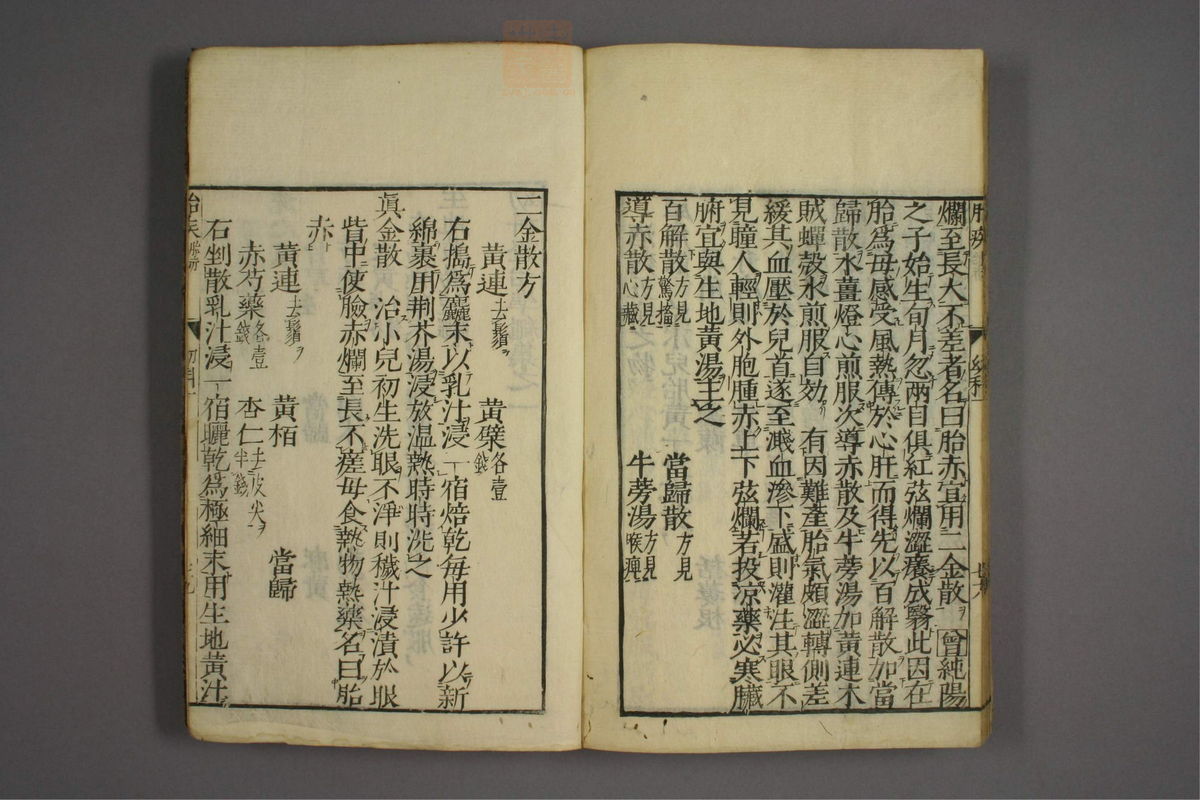 爛至長大不差者名曰胎赤宜用二金散ヲ 曾純陽
之子始生旬月忽兩目俱紅弦爛澀癢成翳此因在
胎爲母感受風熱傳於心肝而得先以百解散加當
歸散水薑燈心煎服次導赤散及牛蒡湯加黃連木
賊蟬殼水煎服自効 有因難產胎氣頗澀轉側差
緩其血壓於兒首遂至濺血滲下盛則灌注其眼不
見瞳人輕則外胞腫赤上下弦爛若投涼藥必寒臟
腑宜與生地黃湯主之
百解散方見驚搐 當歸散方見
導赤散方見心臟 牛蒡湯方見喉痺
二金散方
黃連去鬚ヲ 黃蘗各壹錢
右擣爲麤末以乳汁浸一宿焙乾每用少許以新
綿裹用荆芥湯浸放温熱時時洗之
眞金散 治小兒初生洗眼不淨則穢汁浸漬於眼
眥中使臉赤爛至長不瘥母食熱物熱藥名曰胎
赤
黃連去鬚ヲ 黃栢 當歸
赤芍藥各壹錢 杏仁去皮尖ヲ半錢
右剉散乳汁浸一宿曬乾爲極細末用生地黃汁